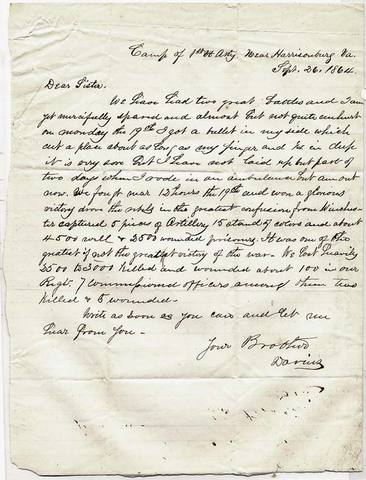 Camp of 1st H Arty Near Harrisonburg Va.
Sept. 26. 1864.
Dear Sister.
We have had two great battles and I am
yet mercifully spared and almost but not quite unhurt
on monday the 19th I got a bullet in my side which
cut a place about as long as my finger and in deep
it is very sore but I have not laid up but part of
two days when I rode in an ambulance but am out
now. We fought near 12 hours the 19th and won a glorious
victory drove the rebels in the greatest confusion from Winches-
ter captured 5 pieces of Artillery 15 stand of colors and about
4500 well & 2500 wounded prisoners. It was one of the
greatest if not the greatest victory of the war. We lost heavily
2500 to 3000 killed and wounded about 100 in our
Regt. 7 commissioned officers among them two
killed & 5 wounded.
Write as soon as you can and let me
hear from you.
Your Brother
Darius